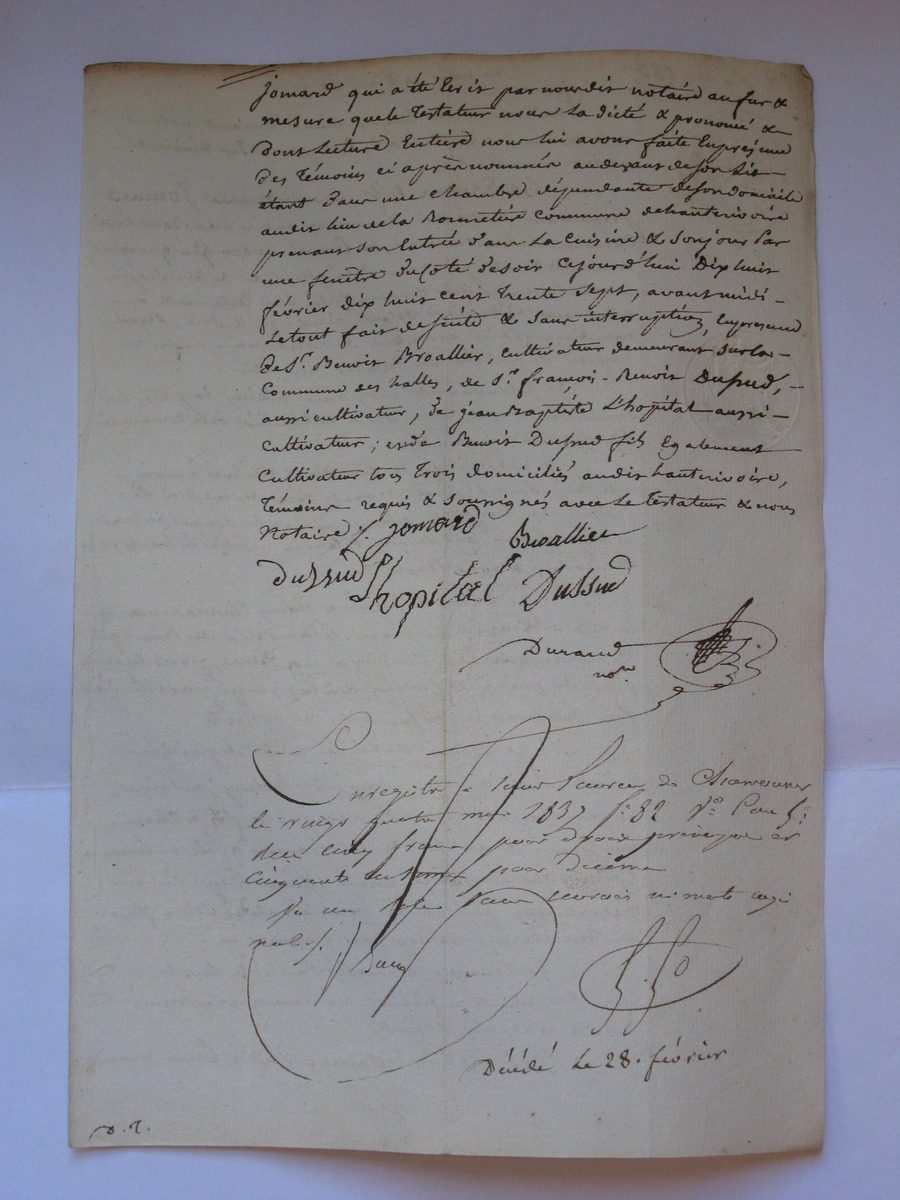 jomard qui a été Ecrit par nous dit notaire au fur &
mesure que le Testateur nous La dicté & prononcé &
Dont Lecture Entière nous lui avons faite En présence
des Témoins ci après nommés au devant de son Lit
étant dans une chambre dépendante de son domicile
audit lieu de la commune de hauterivoire
prenant son Entrée dans La Cuisine & son jour Par
une fenêtre du Coté de soir Cejourd'hui Dix huit
février dix huit cent Trente Sept, avant midi -
Le tout fait de suite & sans interruption, En présence
de Sr. Benoit Broallier, cultivateur demeurant sur la -
Commune des halles, de Sr. françois - Benoit Dussud, -
aussi cultivateur, de jean Baptiste L'hopital aussi -
Cultivateur ; et de Benoit Dussud fils Egalement
Cultivateur tous Trois domiciliés audit hauterivoire,
Témoins requis & soussignés avec Le Testateur & nous
Notaire ./. jomard Broallier
Dussud Lhopital Dussud
Durand
nore
Enregistré a Saint Laurent de Chamousset
le vingt quatre mai 1837 fo. 82 Vo.
cinq francs pour droit et
Cinquante centimes pour décime

Décédé Le 28. février